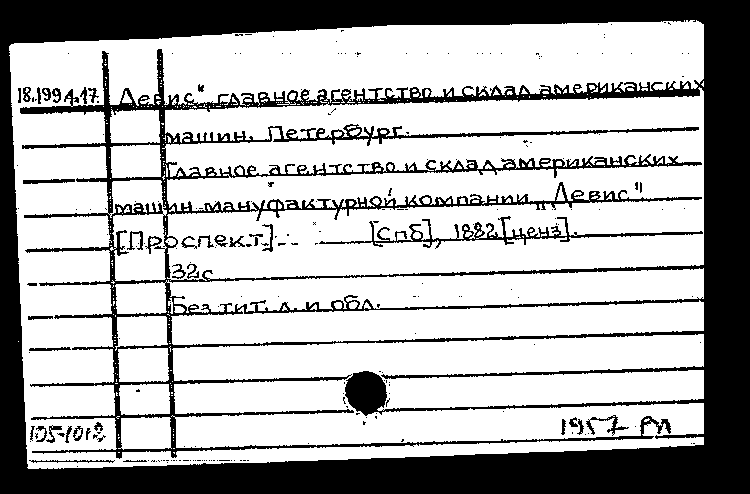 18.199 4.17. „Девис“, главное агентство и склад американских
машин. Петербург.
Главное агентство и склад американских
машин мануфактурной компании „Девис“
[Проспект]. [Спб], 1882 [ценз].
32с
Без тит. л. и обл.
105-1012
1957 РЛ